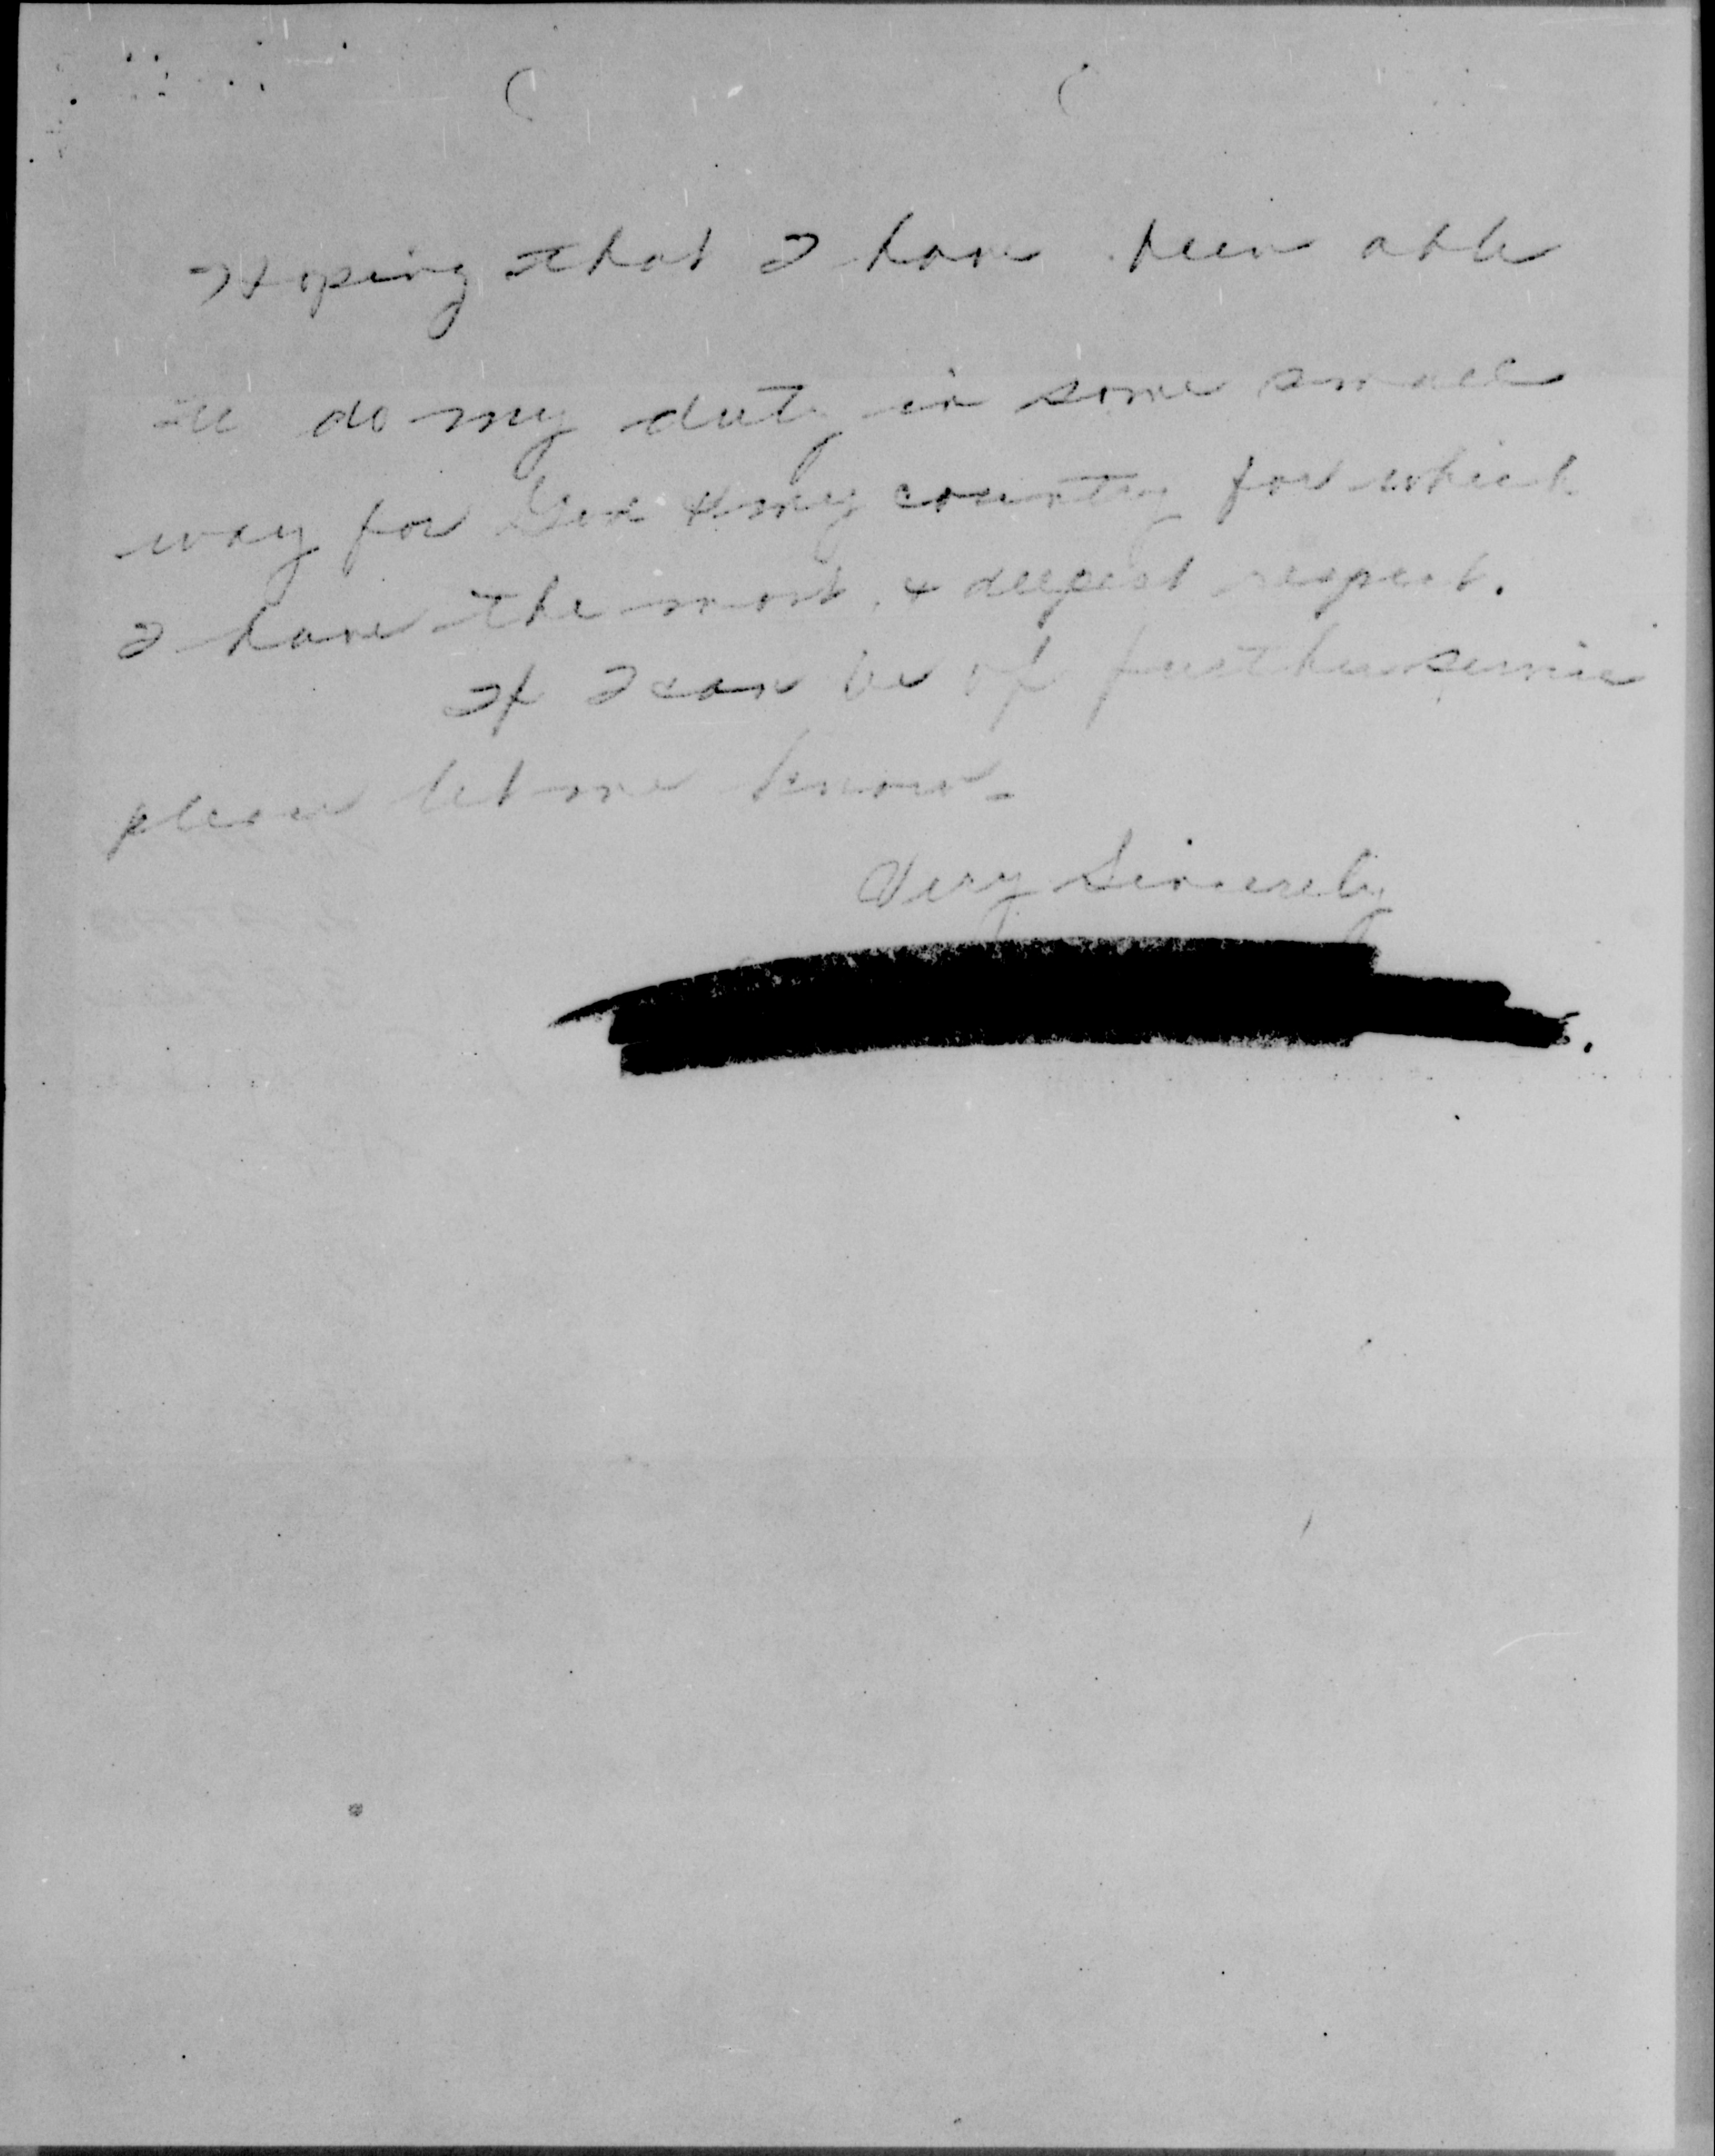 Hoping that I have been able
to do my duty in some small
way for God & my country for which
I have the most, & deepest respect.
If I can be of further service
please let me know.
Very Sincerely